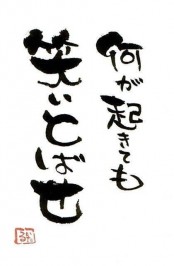 何が起きても
笑いとばせ